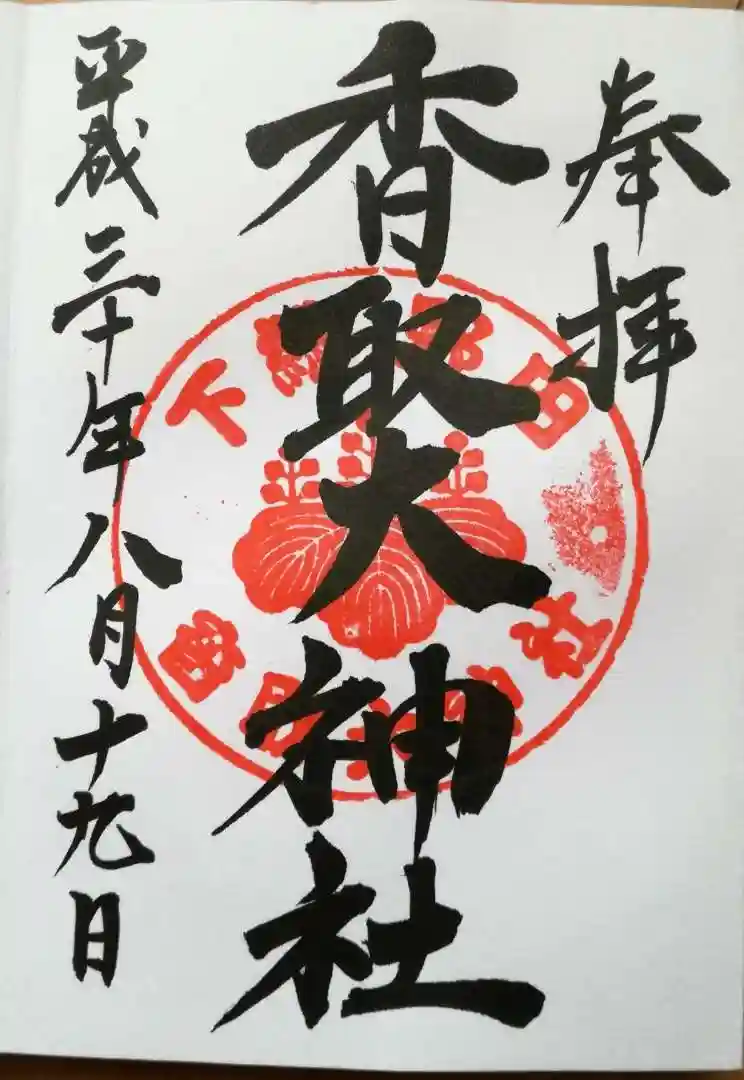 奉拝
香取大神社
平成三十年八月十九日